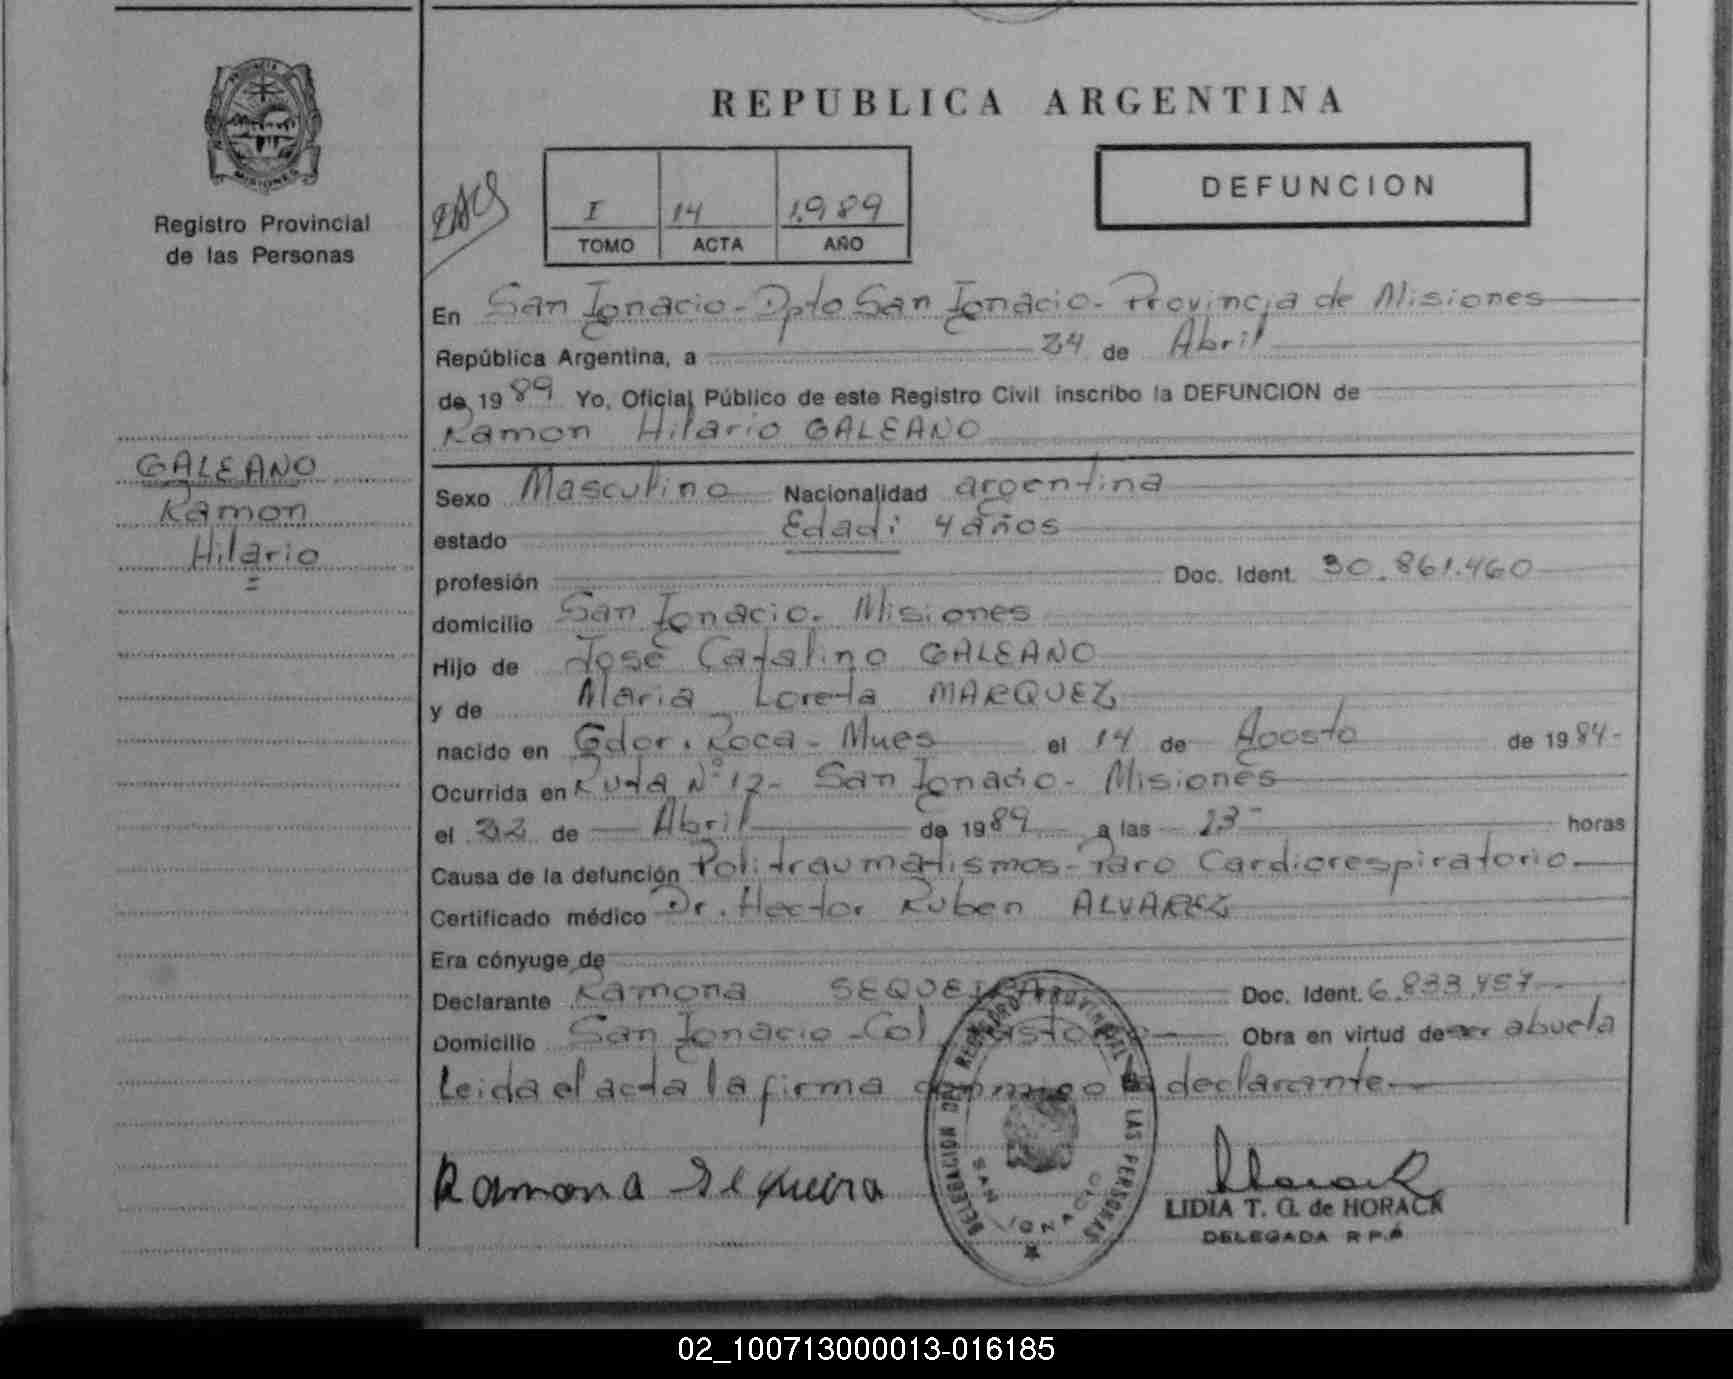 PROVINCIA
MISIONES
Registro Provincial
de las Personas
GALEANO
Ramon
Hilario
REPUBLICA ARGENTINA
I 14 1.989
TOMO ACTA AÑO
DEFUNCION
En San Ignacio - Dpto San Ignacio - Provincia de Misiones
República Argentina, a 24 de Abril
de 19 89 Yo, Oficial Público de este Registro Civil inscribo la DEFUNCION de
Ramon Hilario GALEANO
Sexo Masculino Nacionalidad argentina
estado Edad: 4 años
profesión Doc. Ident. 30.861.460
domicilio San Ignacio. Misiones
Hijo de José Catalino GALEANO
y de Maria Loreta MARQUEZ
nacido en Gdor. Roca - Mnes el 14 de Agosto de 19 84-
Ocurrida en Ruta Nº 12- San Ignacio - Misiones
el 22 de Abril de 19 89 a las 23- horas
Causa de la defunción Politraumatismos - Paro Cardiorespiratorio
Certificado médico Dr. Hector Ruben ALVAREZ
Era cónyuge de
Declarante Ramona SEQUEIRA Doc. Ident. 6.833.457
Domicilio San Ignacio - Col Obra en virtud de ser abuela
Leida el acta la firma conmigo la declarante.
Ramona Sequeira
DELEGACION DEL REGISTRO PROVINCIAL DE LAS PERSONAS
SAN IGNACIO
LIDIA T. G. de HORACK
DELEGADA R.P.P.
02_100713000013-016185